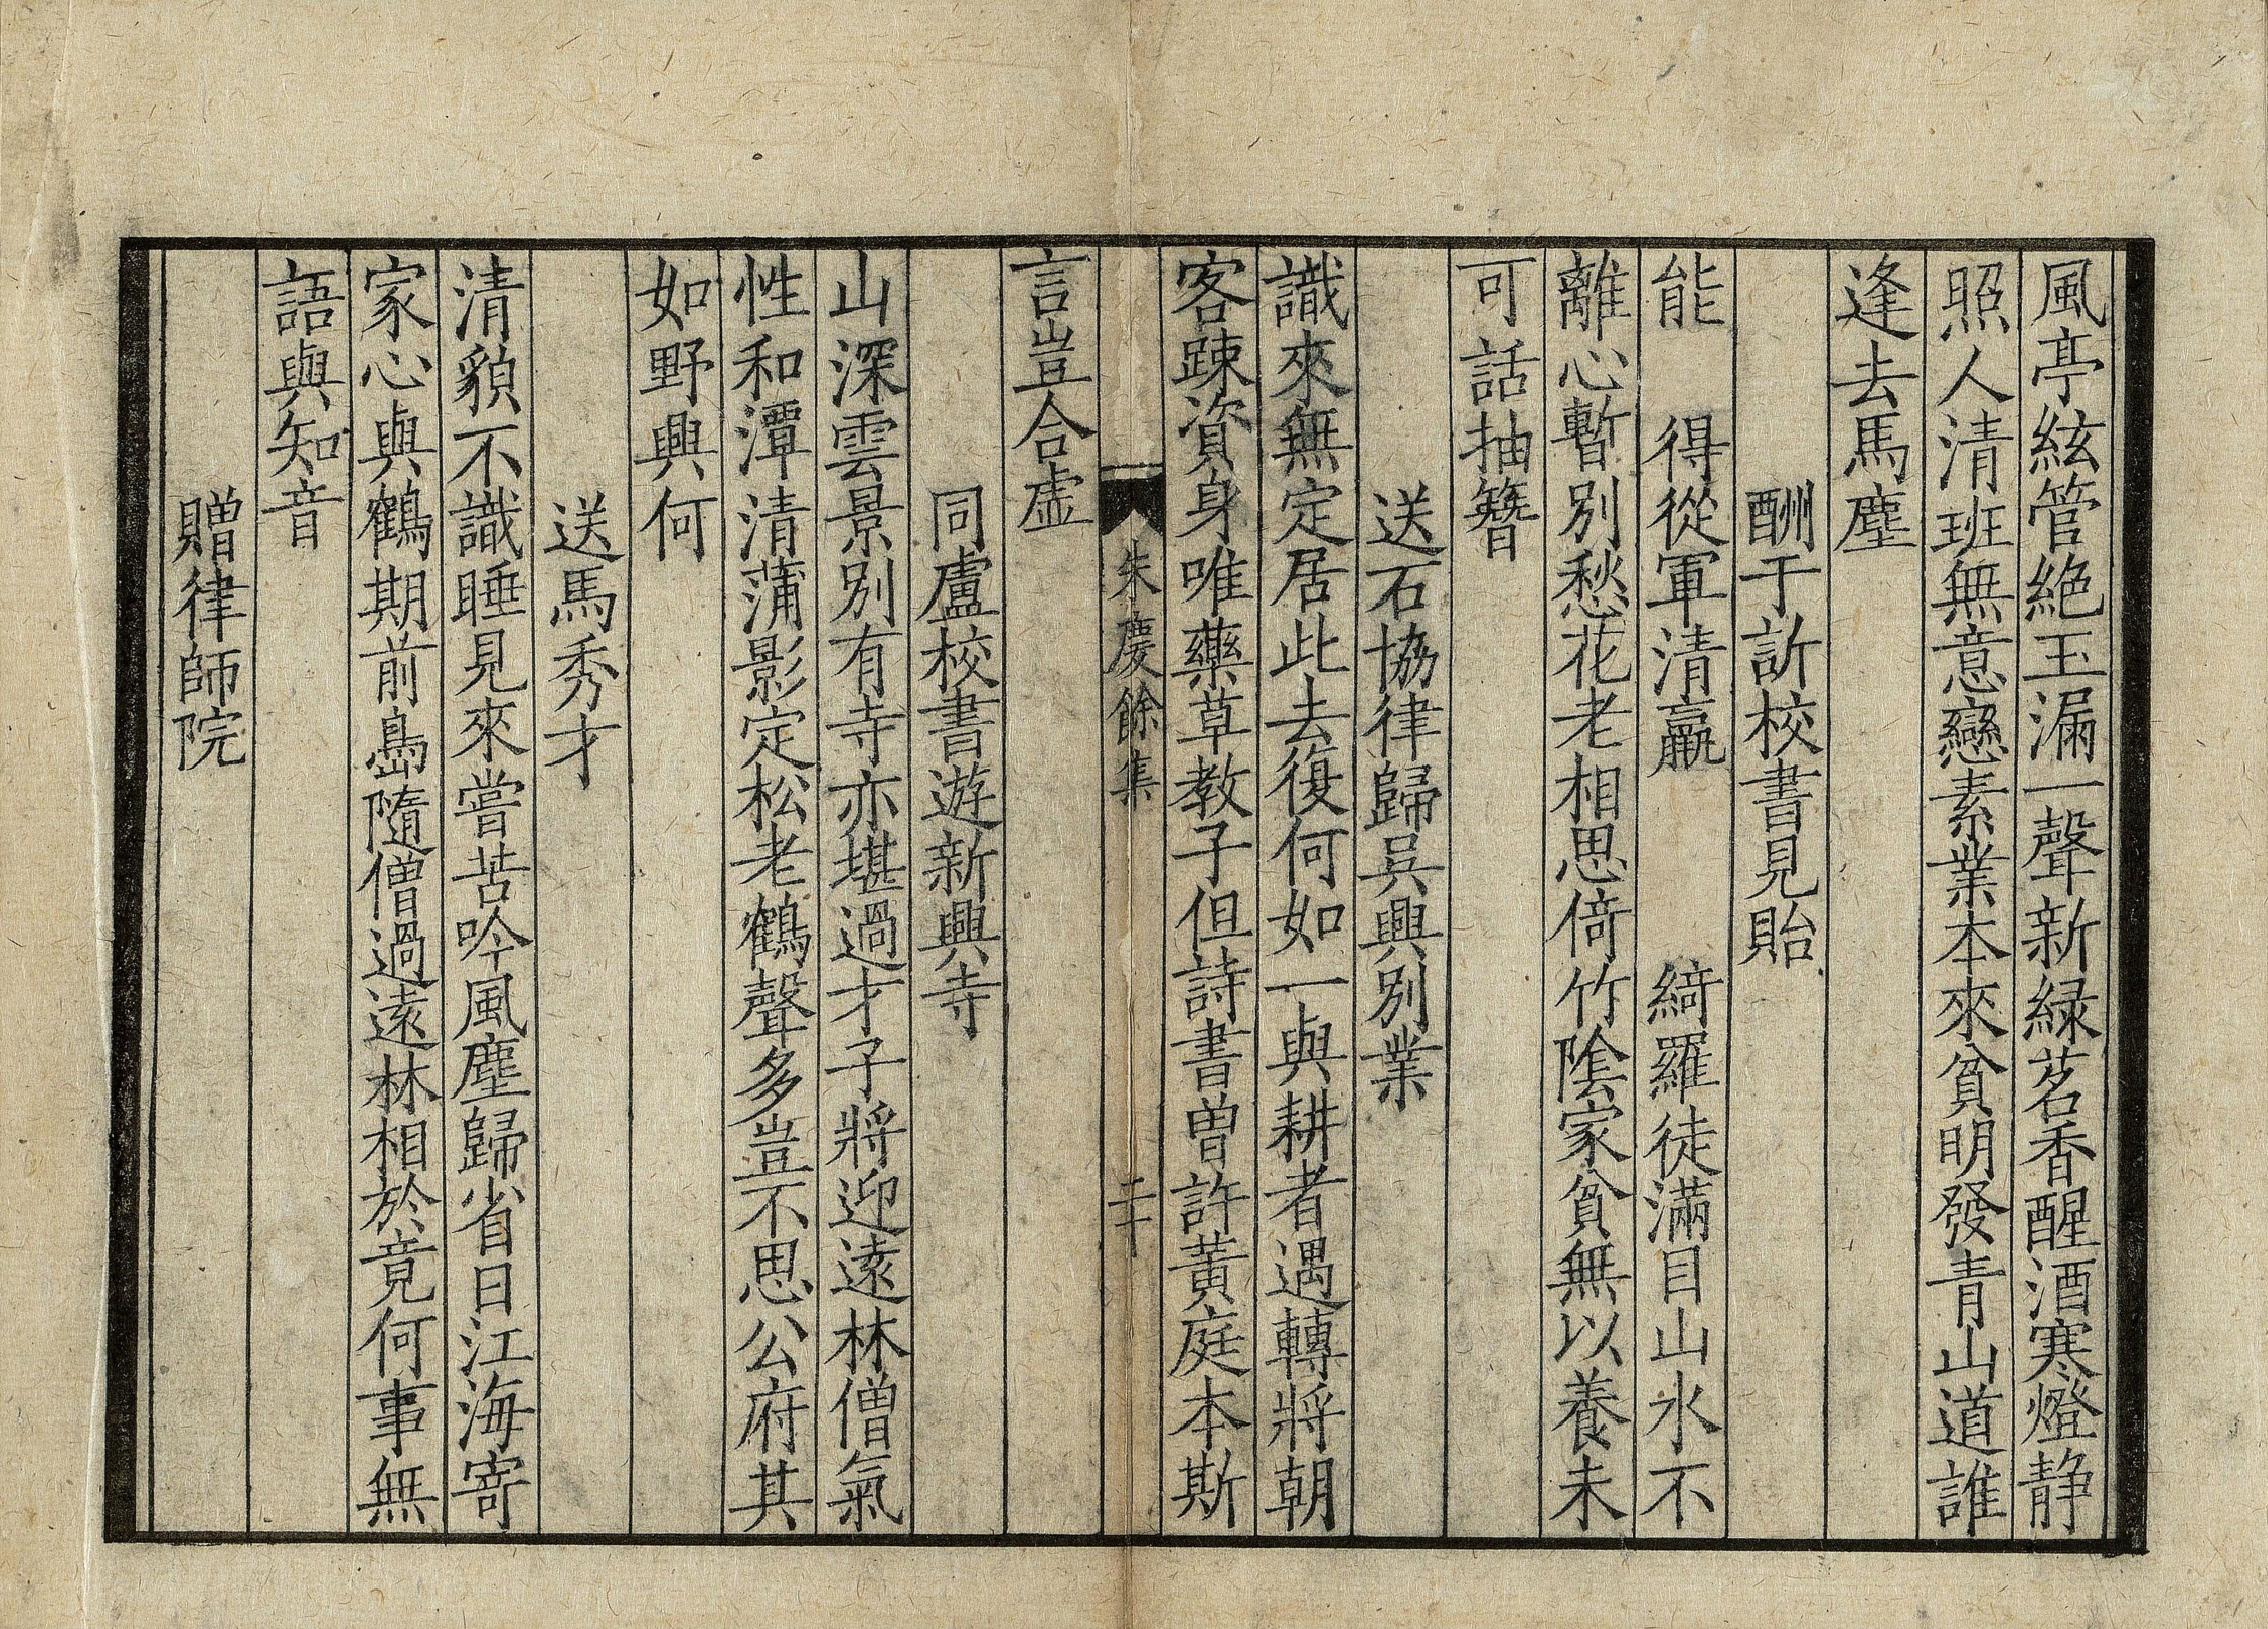 風亭絃管絶玉漏一聲新緑茗香醒酒寒燈静
照人清班無意戀素業本來貧明發青山道誰
逢去馬塵
酬于訢校書見貽
能　得從軍清羸　　綺羅徒滿目山水不
離心暫別愁花老相思倚竹陰家貧無以養未
可話抽簪
送石協律歸吳興別業
識來無定居此去復何如一與耕者遇轉將朝
客踈資身唯藥草教子但詩書曽許黄庭本斯
朱慶餘集
二十
言豈合虛
同盧校書遊新興寺
山深雲景別有寺亦堪過才子將迎遠林僧氣
性和潭清蒲影定松老鶴聲多豈不思公府其
如野興何
送馬秀才
清貌不識睡見來嘗苦吟風塵歸省日江海寄
家心與鶴期前島隨僧過遠林相於竟何事無
語與知音
贈律師院